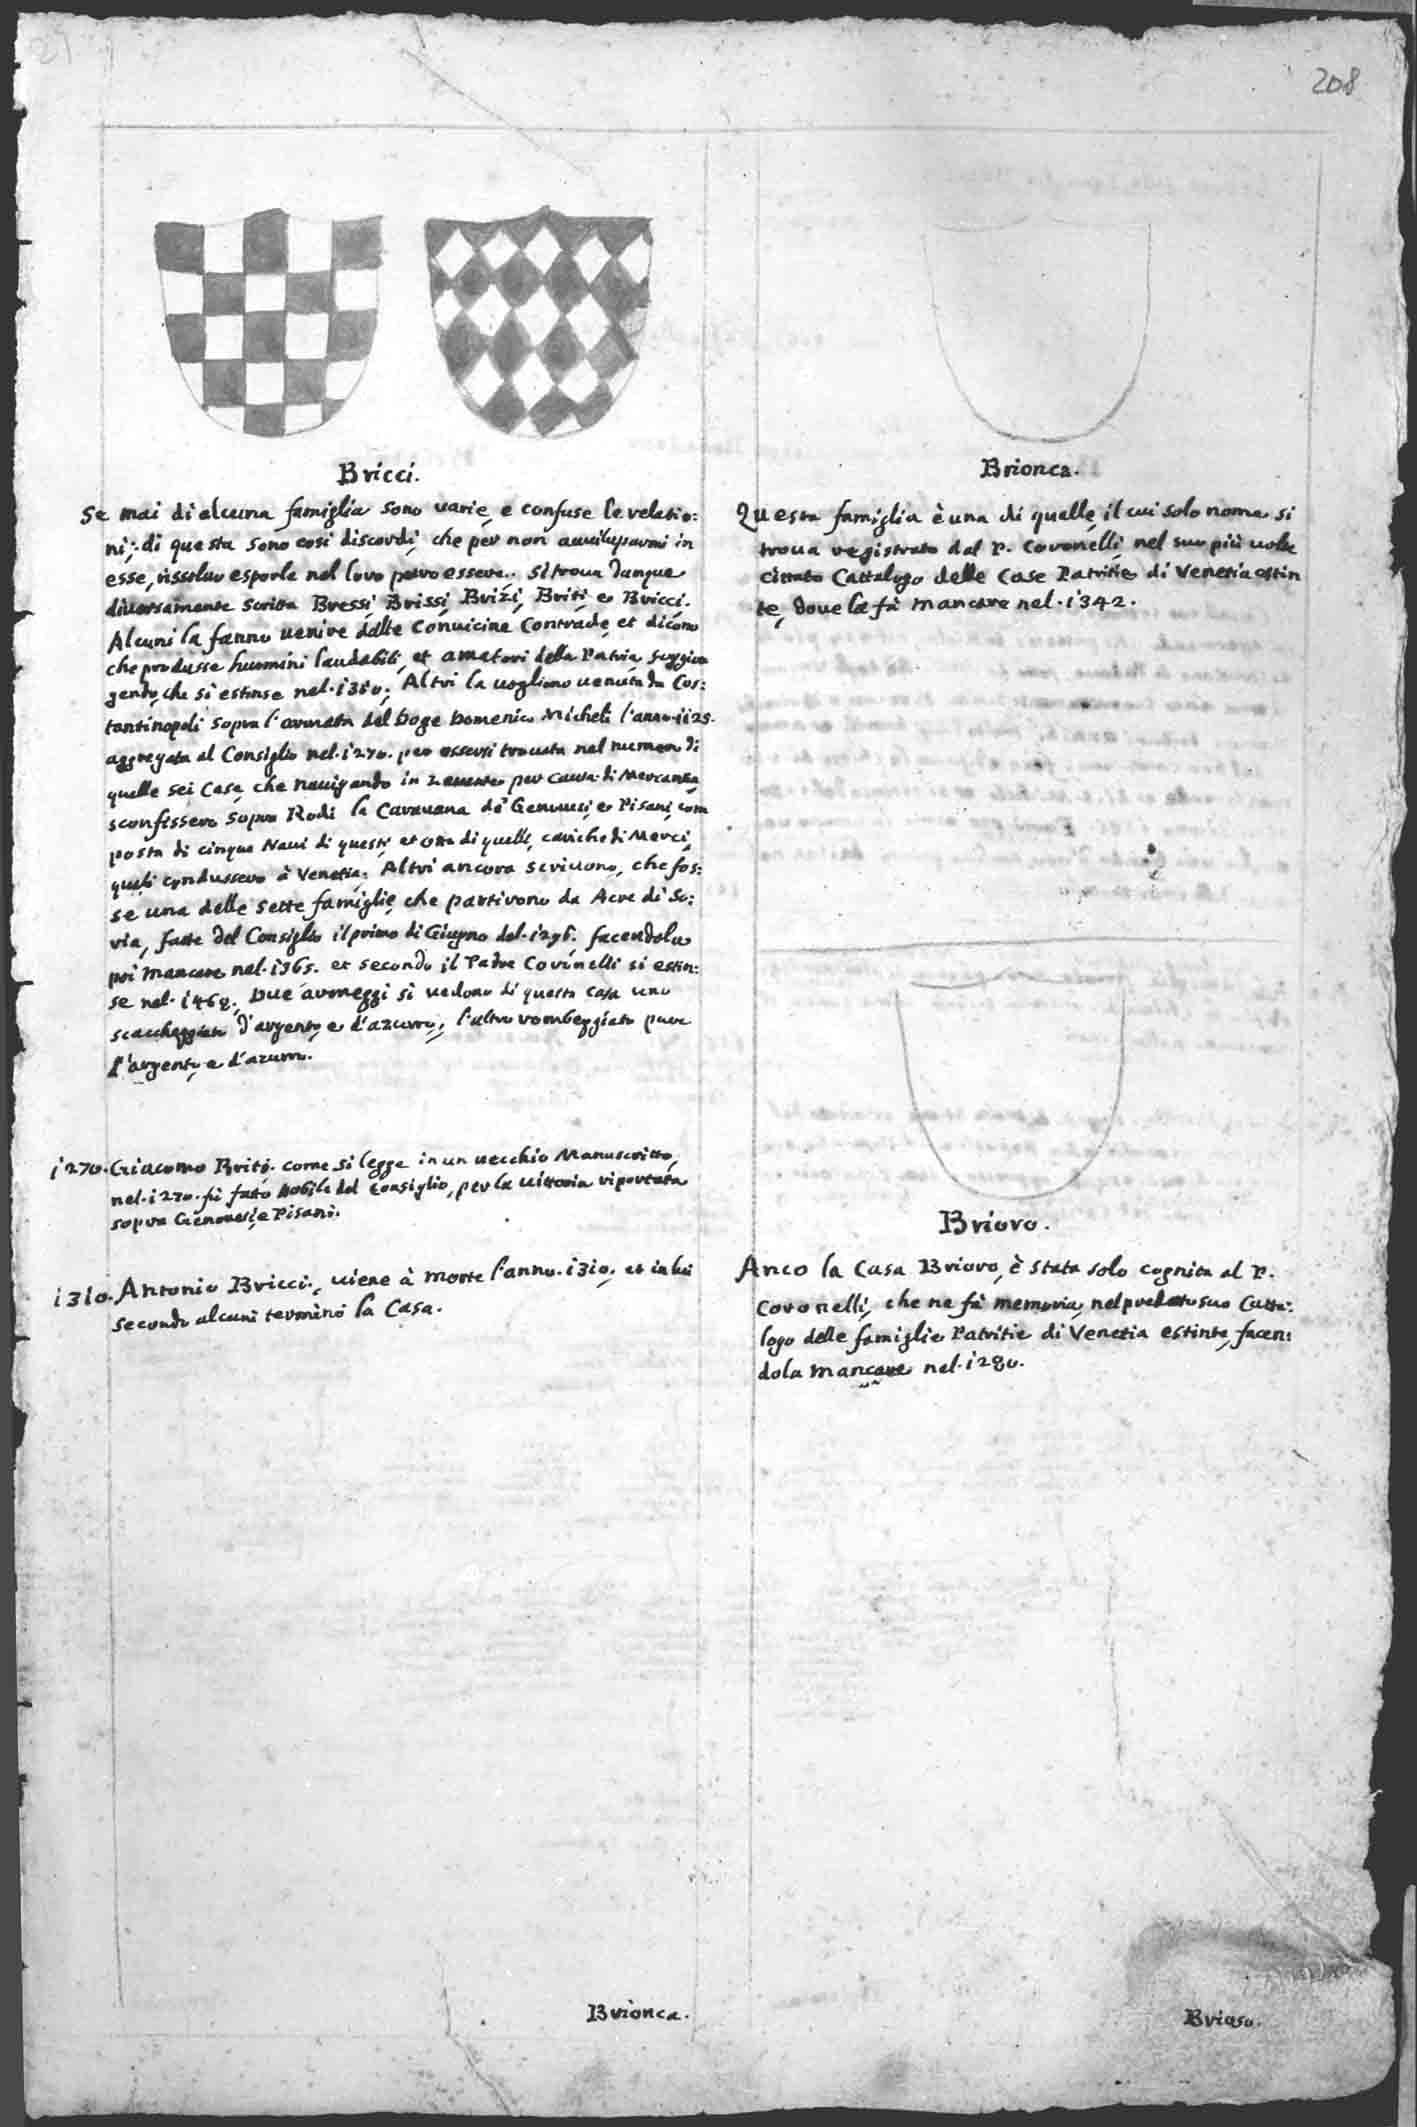 208
Bricci.
Se mai di alcuna famiglia sono varie, e confuse le relatio:
ni; di questa sono cosi discordi, che per non auuiluparmi in
esse, rissoluo esporle nel loro puro essere. Si troua dunque
diuersamente scritta Bressi, Brissi, Brizi, Briti, e Bricci.
Alcuni la fanno uenire dalle Conuicine Contrade, et dicono
che produsse huomini laudabili, et amatori della Patria, soggion
gendo, che si estinse nel. 1310; Altri la uogliono uenuta da Cos:
tantinopoli sopra l'armata del Doge Domenico Micheli l'anno. 1125.
aggregata al Consiglio nel. 1270. per essersi trouata nel numero di
quelle sei Case, che nauigando in Leuante per causa di Mercantia,
sconfissero sopra Rodi la Carauana de' Genouesi, e Pisani, com
posta di cinque Naui di questi, et otto di quelli, cariche di Merci,
quali condussero à Venetia; Altri ancora scriuono, che fos:
se una delle sette famiglie, che partirono da Acre di So:
ria, fatte del Consiglio il primo di Giugno del. 1296. facendola
poi mancare nel. 1365. et secondo il Padre Coronelli si estin:
se nel. 1468; Due armeggi si uedono di questa casa uno
scacheggiato d'argento, e d'azurro; l'altro rombeggiato pure
d'argento, e d'azurro.
1270. Giacomo Briti. come si legge in un uecchio Manuscritto,
nel. 1270. fù fatto Nobile del Consiglio, per la uittoria riportata
sopra Genouesi, e Pisani.
1310. Antonio Bricci, uiene à morte l'anno. 1310; et in lui
secondo alcuni terminò la Casa.
Brionca.
Brionca.
Questa famiglia è una di quelle, il cui solo nome si
troua registrato dal P. Coronelli, nel suo più uolte
cittato Cattalogo delle Case Patritie di Venetia estin
te, doue la fà mancare nel. 1342.
Brioro.
Anco la Casa Brioro, è stata solo cognita al P.
Coronelli, che ne fà memoria, nel predetto suo Catta:
logo delle famiglie Patritie di Venetia estinte, facen:
dola mancare nel. 1280.
Brioso.